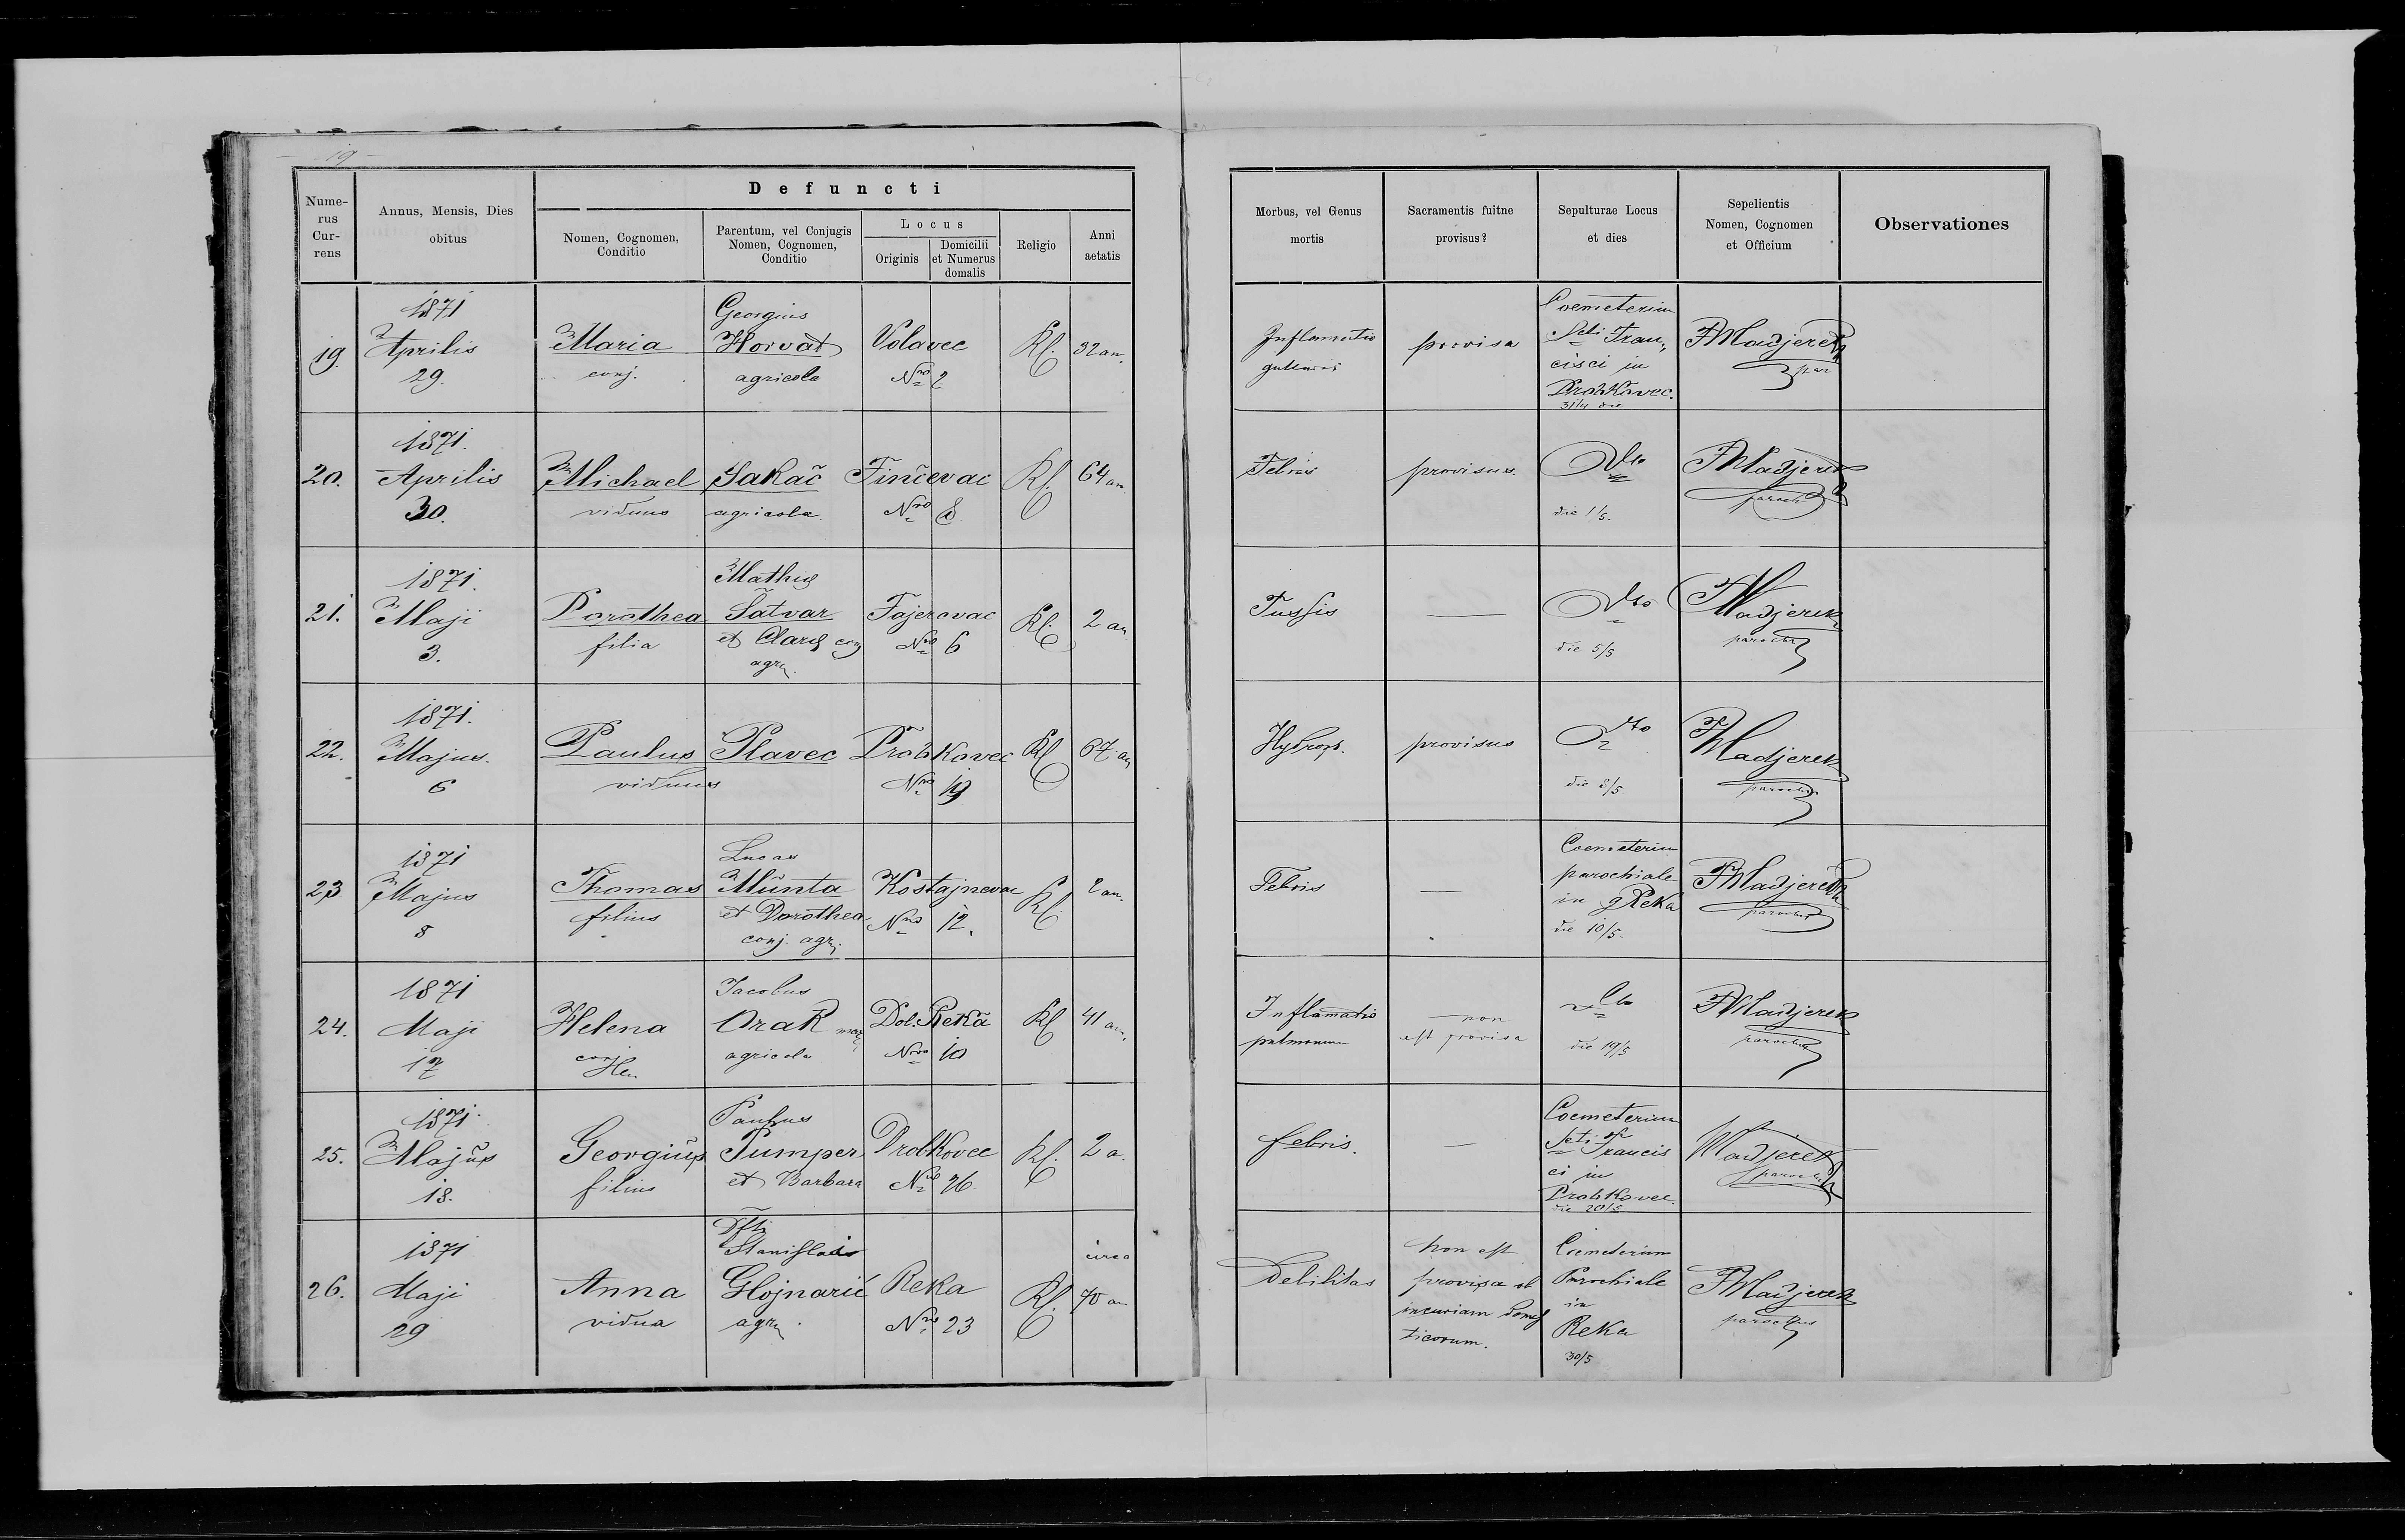 19
Defuncti
Numerus Currens | Annus, Mensis, Dies obitus | Nomen, Cognomen, Conditio | Parentum, vel Conjugis Nomen, Cognomen, Conditio | Locus Originis | Domicilii et Numerus domalis | Religio | Anni aetatis
Morbus, vel Genus mortis | Sacramentis fuitne provisus? | Sepulturae Locus et dies | Sepelientis Nomen, Cognomen et Officium | Observationes
19. | 1871 Aprilis 29. | Maria conj. | Georgius Horvat agricola | Volavec Nro 2 | 32 an. | Inflamatio gutturis | provisa | Coemeterium Scti Francisci in Prahkovec. | FMadjerek par
20. | 1871. Aprilis 30. | Michael viduus | Sakač agricola | Finčevac Nro 8 | 64 an | Febris | provisus. | Dto die 1/5. | FMadjerek paroch
21. | 1871. Maji 3. | Dorothea filia | Mathiae Šatvar et Clarae conj agr. | Fajerovac Nro 6 | 2 an. | Tussis | — | Dto die 5/5 | FMadjerek paroch
22. | 1871. Majus. 6 | Paulus viduus | Plavec | Prahkovec Nro 19 | 67 an | Hydrops. | provisus | Dto die 8/5 | FMadjerek parochus
23 | 1871 Majus 8 | Thomas filius | Lucas Münta et Dorothea conj. agr. | Kostajnevac Nro 12. | 2 an. | Febris | — | Coemeterium parochiale in Reka die 10/5. | FMadjerek parochus
24. | 1871 Maji 17 | Helena conj | Jacobus Orak agricola | Dol. Reka Nro 10 | 41 an. | Inflamatio pulmonum | non est provisa | Dto die 19/5 | FMadjerek parochus
25. | 1871. Majus 18. | Georgius filius | Paulus Pumper et Barbara | Prahkovec Nro 26. | 2 a. | febris. | — | Coemeterium Scti Francisci in Prahkovec. die 20/5 | Madjerek parochus
26. | 1871 Maji 29 | Anna vidua | Dfti Stanislai Glojnarić agr. | Reka Nro 23 | circa 70 an | Debilitas | non est provisa ob incuriam domesticorum. | Coemeterium Parochiale in Reka 30/5 | FMadjerek parochus